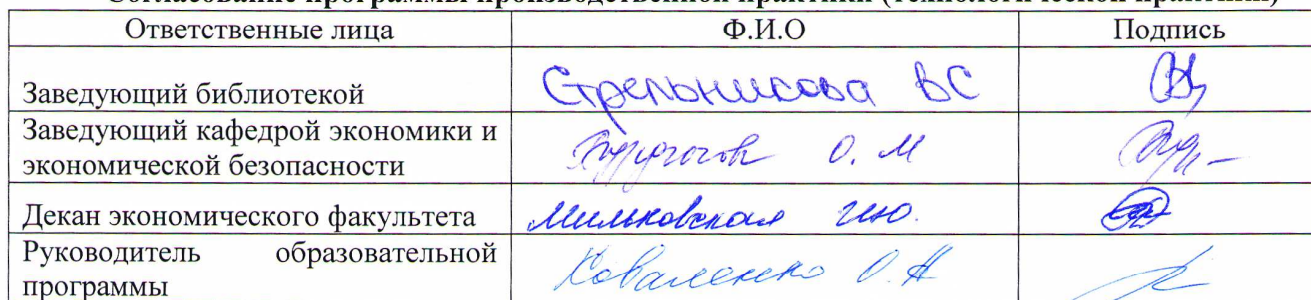 Согласование программы производственной практики (технологической практики)
Ответственные лица Ф.И.О Подпись
Заведующий библиотекой Стрельникова ВС
Заведующий кафедрой экономики и
экономической безопасности О. М
Декан экономического факультета Мильковская И.Ю.
Руководитель образовательной
программы Коваленко О.Н